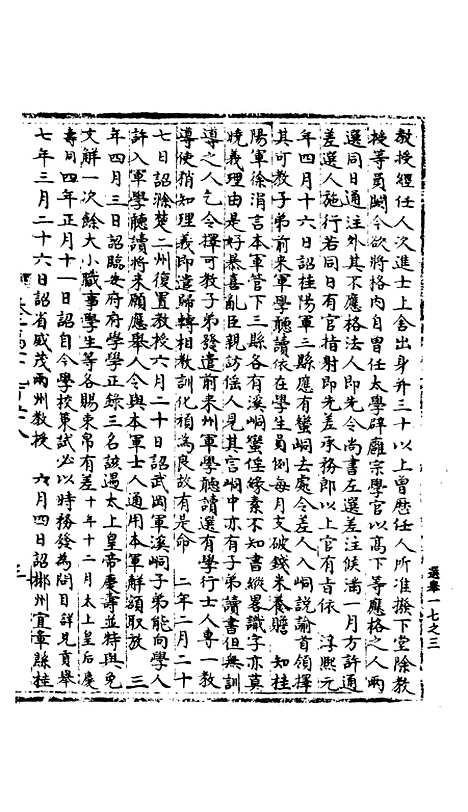 教授經任人次進士上舍出身升三十以上曾歷任人所准撥下堂除教
授等員闕今欲將格內自曾任太學辟廱宗學官以高下等應格之人兩
選同日通注外其不應格法人即先令尚書左選差注候滿一月方許通
差選人施行若同日有官指射即先差承務郎以上官有旨依　淳熙元
年四月十六日詔桂陽軍三縣應有蠻峒去處令差人入峒說諭首領擇
其可教子弟前來軍學聽讀依在學生員例每月支破錢米養贍　知桂
陽軍徐涓言本軍管下三縣各有溪峒蠻傜緣素不知書縱畧識字亦莫
曉義理由是好暴喜亂臣親訪傜人見其言峒中亦有子弟讀書但無訓
導之人乞令擇可教子弟發遣前來州軍學聽讀選有學行士人專一教
導使稍知理義即遣歸轉相教訓化頑為良故有是命　二年二月二十
七日詔滁楚二州復置教授六月二十日詔武岡軍溪峒子弟能向學人
許入軍學聽讀將來願應舉人令與本軍士人通用本軍解額取放　三
年四月三日詔臨安府府學學正錄三名該遇太上皇帝慶壽並特與免
文解一次餘大小職事學生等各賜束帛有差十年十二月太上皇后慶
壽同四年正月十一日詔自今學校策試必以時務發為問目詳見貢舉
七年三月二十六日詔省威茂兩州教授　六月四日詔郴州宜章縣桂
選舉一七之三